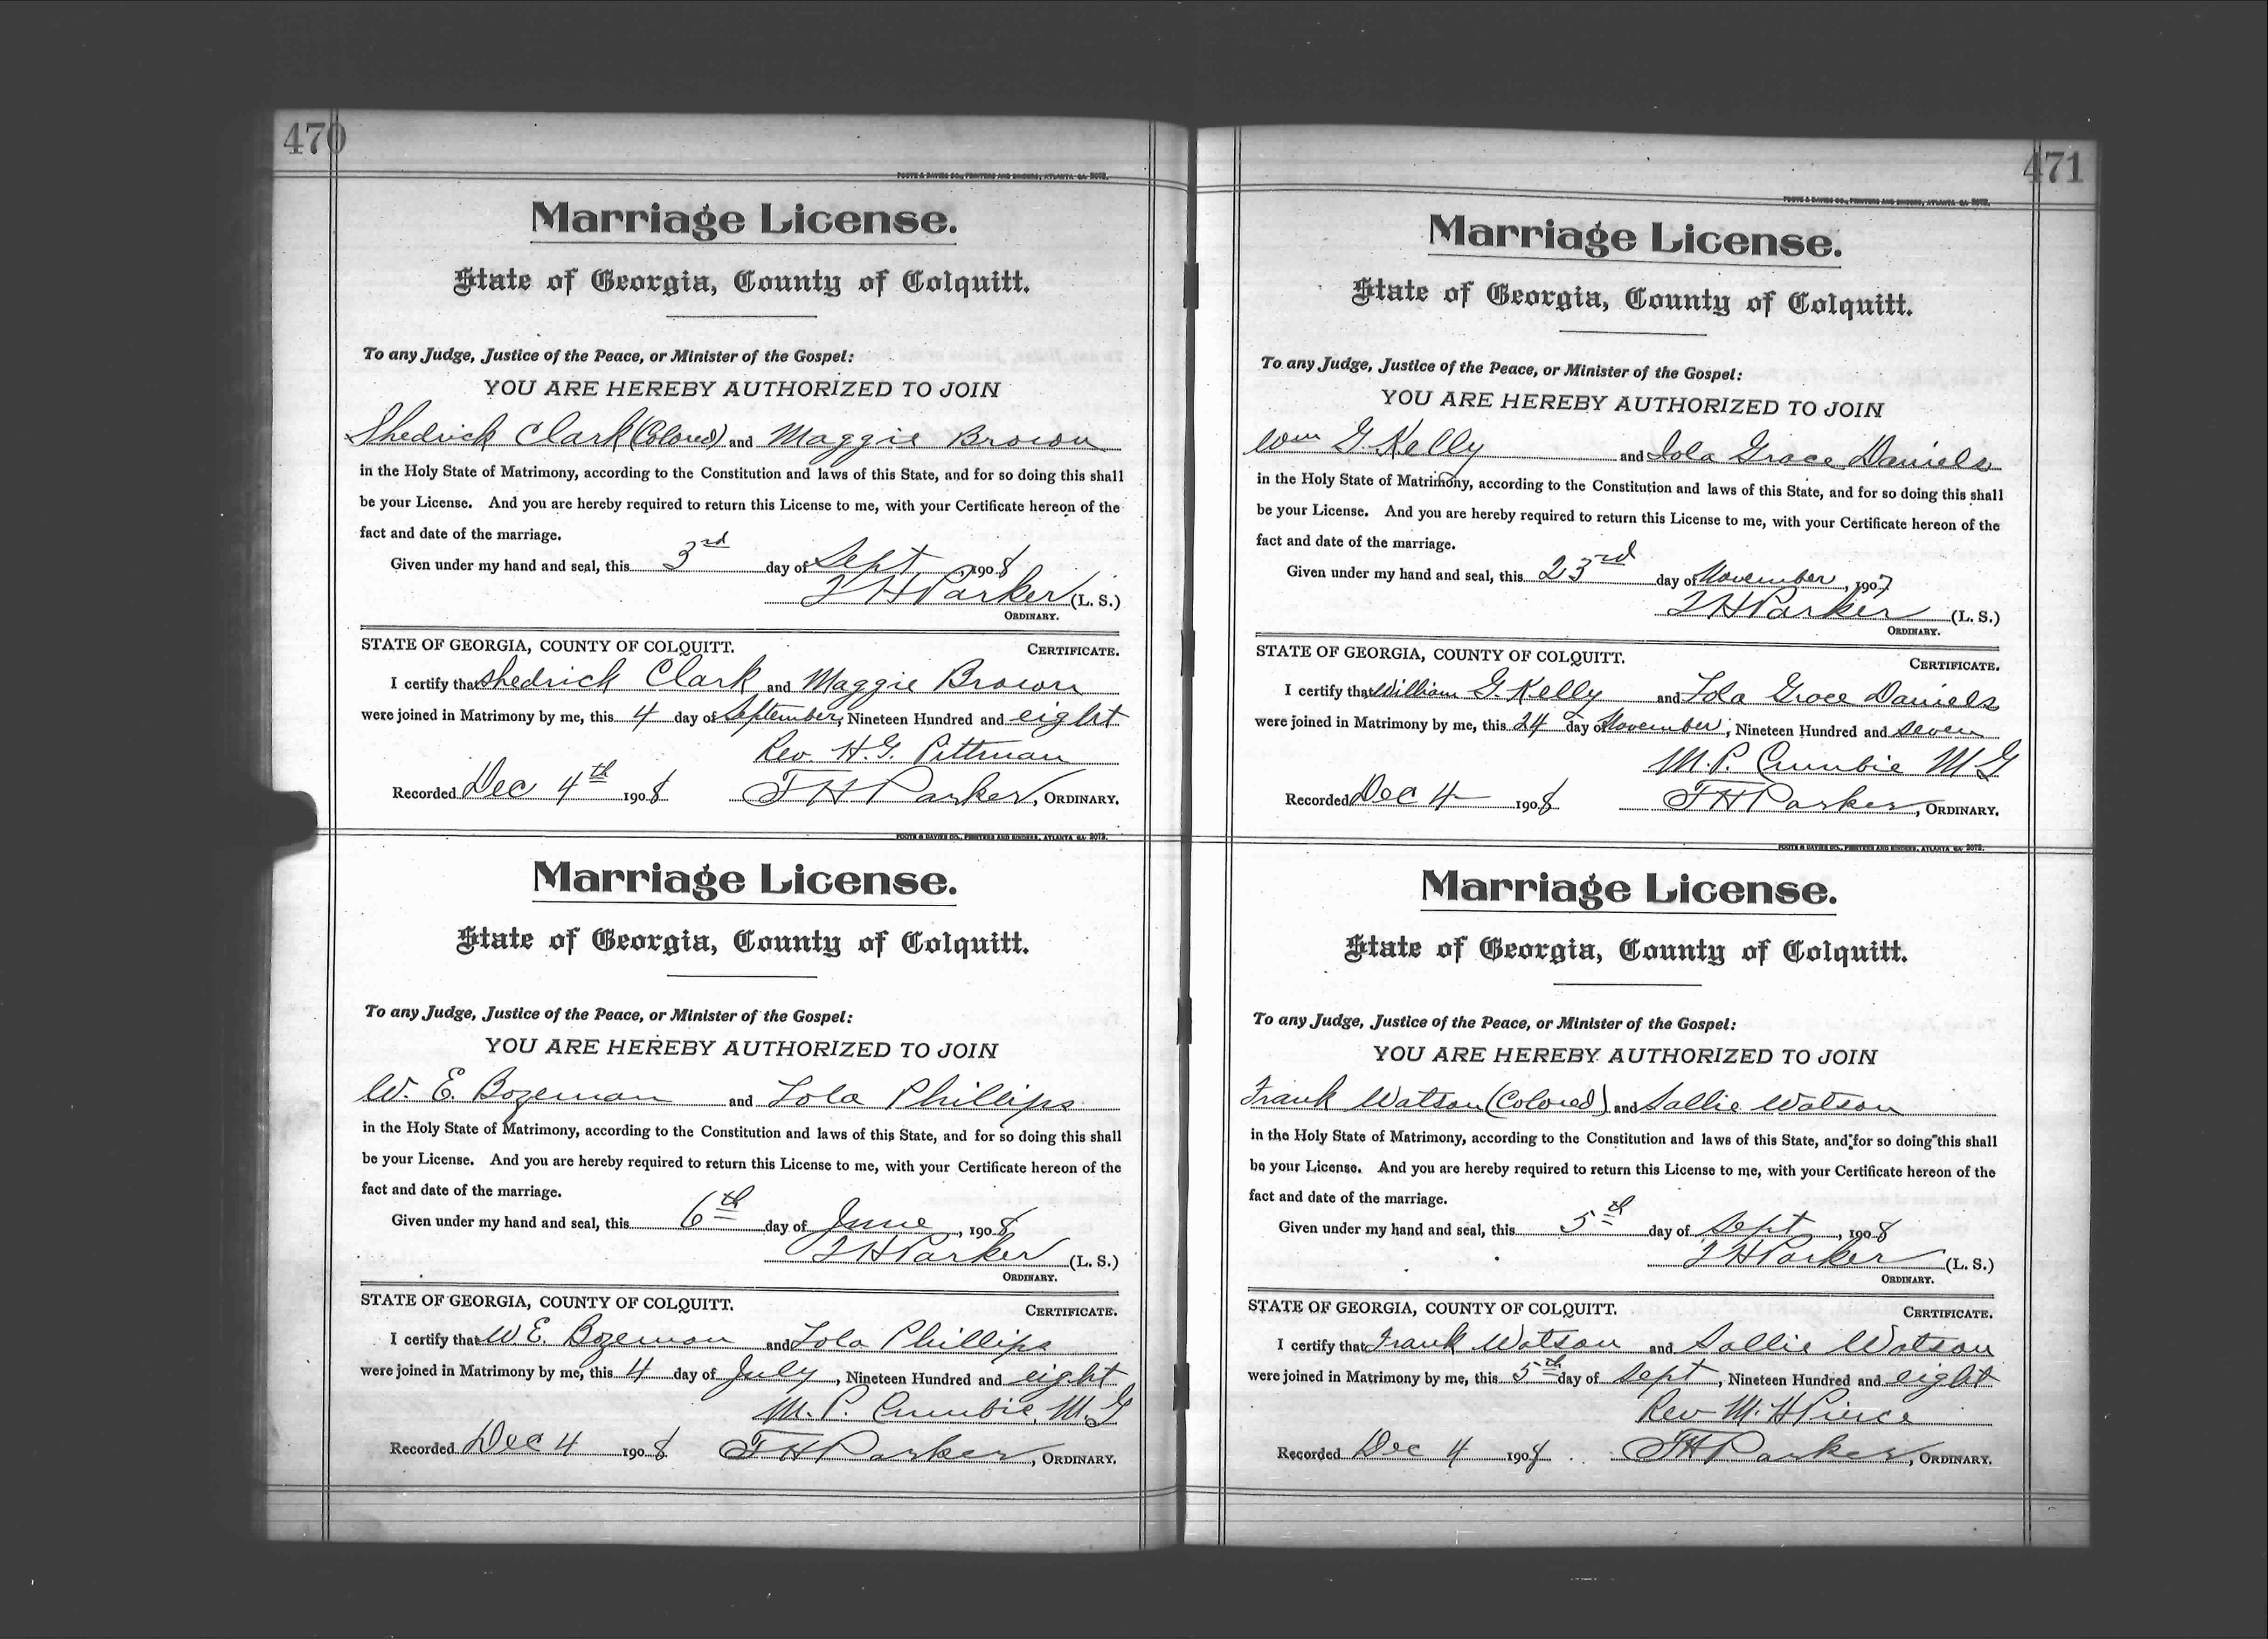 470
FOOTE & DAVIES CO., PRINTERS AND BINDERS, ATLANTA GA. 2072.
Marriage License.
State of Georgia, County of Colquitt.
To any Judge, Justice of the Peace, or Minister of the Gospel:
YOU ARE HEREBY AUTHORIZED TO JOIN
Shedrick Clark (Colored) and Maggie Brown
in the Holy State of Matrimony, according to the Constitution and laws of this State, and for so doing this shall
be your License. And you are hereby required to return this License to me, with your Certificate hereon of the
fact and date of the marriage.
Given under my hand and seal, this 3rd day of Sept, 1908
T H Parker (L. S.)
ORDINARY.
STATE OF GEORGIA, COUNTY OF COLQUITT. CERTIFICATE.
I certify that Shedrick Clark and Maggie Brown
were joined in Matrimony by me, this 4 day of September, Nineteen Hundred and eight
Rev. H. G. Pittman
Recorded Dec 4th 1908 T H Parker, ORDINARY.
FOOTE & DAVIES CO., PRINTERS AND BINDERS, ATLANTA GA. 2072.
Marriage License.
State of Georgia, County of Colquitt.
To any Judge, Justice of the Peace, or Minister of the Gospel:
YOU ARE HEREBY AUTHORIZED TO JOIN
W. E. Bozeman and Lola Phillips
in the Holy State of Matrimony, according to the Constitution and laws of this State, and for so doing this shall
be your License. And you are hereby required to return this License to me, with your Certificate hereon of the
fact and date of the marriage.
Given under my hand and seal, this 6th day of June, 1908
T H Parker (L. S.)
ORDINARY.
STATE OF GEORGIA, COUNTY OF COLQUITT. CERTIFICATE.
I certify that W. E. Bozeman and Lola Phillips
were joined in Matrimony by me, this 4 day of July, Nineteen Hundred and eight
M. P. Crumbie. M. G
Recorded Dec 4 1908 T H Parker, ORDINARY.
471
FOOTE & DAVIES CO., PRINTERS AND BINDERS, ATLANTA GA. 2072.
Marriage License.
State of Georgia, County of Colquitt.
To any Judge, Justice of the Peace, or Minister of the Gospel:
YOU ARE HEREBY AUTHORIZED TO JOIN
Wm G. Kelly and Iola Grace Daniels
in the Holy State of Matrimony, according to the Constitution and laws of this State, and for so doing this shall
be your License. And you are hereby required to return this License to me, with your Certificate hereon of the
fact and date of the marriage.
Given under my hand and seal, this 23rd day of November, 1907
T H Parker (L. S.)
ORDINARY.
STATE OF GEORGIA, COUNTY OF COLQUITT. CERTIFICATE.
I certify that William G. Kelly and Iola Grace Daniels
were joined in Matrimony by me, this 24 day of November, Nineteen Hundred and seven
M. P. Crumbie M G
Recorded Dec 4 1908 T H Parker, ORDINARY.
FOOTE & DAVIES CO., PRINTERS AND BINDERS, ATLANTA GA. 2072.
Marriage License.
State of Georgia, County of Colquitt.
To any Judge, Justice of the Peace, or Minister of the Gospel:
YOU ARE HEREBY AUTHORIZED TO JOIN
Frank Watson (Colored) and Sallie Watson
in the Holy State of Matrimony, according to the Constitution and laws of this State, and for so doing this shall
be your License. And you are hereby required to return this License to me, with your Certificate hereon of the
fact and date of the marriage.
Given under my hand and seal, this 5th day of Sept, 1908
T H Parker (L. S.)
ORDINARY.
STATE OF GEORGIA, COUNTY OF COLQUITT. CERTIFICATE.
I certify that Frank Watson and Sallie Watson
were joined in Matrimony by me, this 5th day of Sept, Nineteen Hundred and eight
Rev M. H Pierce
Recorded Dec 4 1908 T H Parker, ORDINARY.